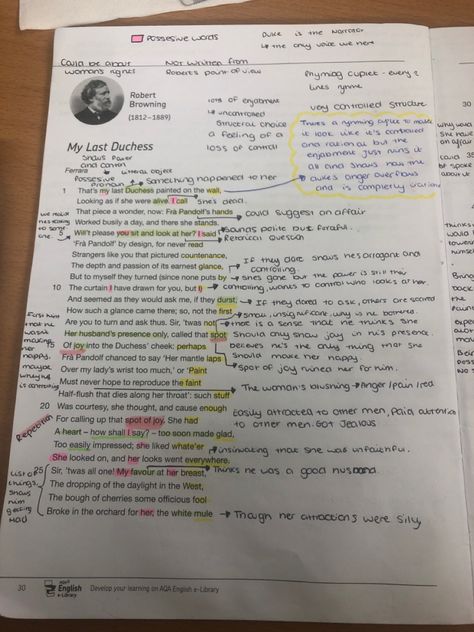 Possesive words
Duke is the narrator
↳ the only voice we hear
Could be about
woman's rights
Not written from
Robert's point of view
Rhyming cuplet - every 2
lines rhyme
very controlled structure
Robert
Browning
(1812–1889)
lots of enjabment
↳ uncontrolled
Structral choice
a feeling of a
loss of control
There's a rhyming cuplet to make
it look like it's controlled
and rational but the
enjabment just ruins it
all and shows how the
duke's anger overflows
and is completly
My Last Duchess
Shows Power
and control
Ferrara
literal object
Possesive
pronoun
Something happened to her
1 That's my last Duchess painted on the wall,
Looking as if she were alive. I call
She's dead.
That piece a wonder, now: Frà Pandolf's hands
could suggest an affair
Worked busily a day, and there she stands.
5 Will't please you sit and look at her? I said
Sounds polite but forceful.
Retorical question
'Frà Pandolf' by design, for never read
Strangers like you that pictured countenance,
The depth and passion of its earnest glance,
If they dare shows he's arrogant and
controlling.
But to myself they turned (since none puts by
she's gone but the power is still there
10 The curtain I have drawn for you, but I)
controlling, wants to control who looks at her.
And seemed as they would ask me, if they durst,
If they dared to ask, others are scared
How such a glance came there; so, not the first
small, insignificant, why is he bothered.
Are you to turn and ask thus. Sir, 'twas not
there is a sense that he thinks she
Her husband's presence only, called that spot
should only show joy in his presence.
Of joy into the Duchess' cheek: perhaps
Believes he's the only thing that she
should make her happy.
Frà Pandolf chanced to say 'Her mantle laps
Spot of joy ruined her for him.
Over my lady's wrist too much,' or 'Paint
Must never hope to reproduce the faint
The woman's blushing → Anger/pain/red
Half-flush that dies along her throat': such stuff
20 Was courtesy, she thought, and cause enough
Easily attracted to other men, Paid attention
to other men. Got Jealous
For calling up that spot of joy. She had
Repetition
A heart – how shall I say? – too soon made glad,
Too easily impressed; she liked whate'er
insinuating that she was unfaithful.
She looked on, and her looks went everywhere.
25 Sir, 'twas all one! My favour at her breast,
Thinks he was a good husband.
The dropping of the daylight in the West,
The bough of cherries some officious fool
Broke in the orchard for her, the white mule
Though her attractions were silly
First hint
that he
wasn't
making
her
happy.
maybe
why he
is controlling
List of
things
shows
him
getting
mad
30
AQA
English
e-Library
Develop your learning on AQA English e-Library